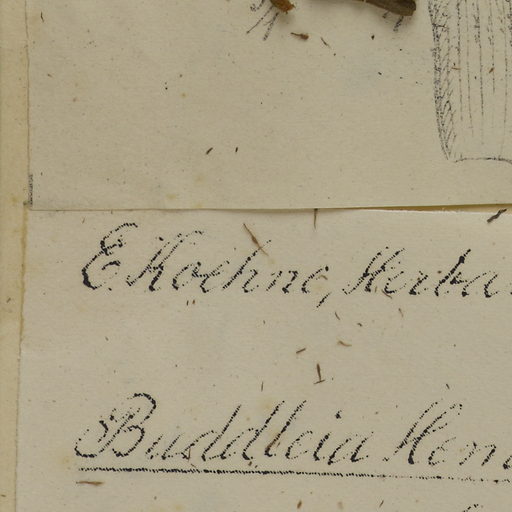 E. Koehne, Herba
Buddleia Hem